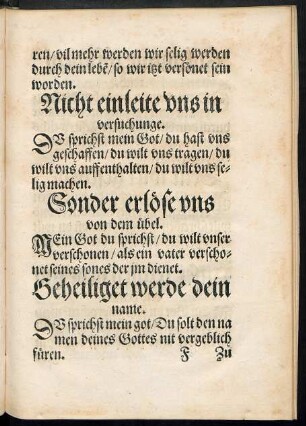 ren/ vil mehr werden wir selig werden
durch dein lebē/ so wir itzt versönet sein
worden.
Nicht einleite vns in
versuchunge.
DV sprichst mein Got/ du hast vns
geschaffen/ du wilt vns tragen/ du
wilt vns auffenthalten/ du wilt vns se-
lig machen.
Sonder erlöse vns
von dem übel.
MEin Got du sprichst/ du wilt vnser
verschonen/ als ein vater verscho-
net seines sones der jm dienet.
Geheiliget werde dein
name.
DV sprichst mein got/ Du solt den na
men deines Gottes nit vergeblich
füren. F Zu